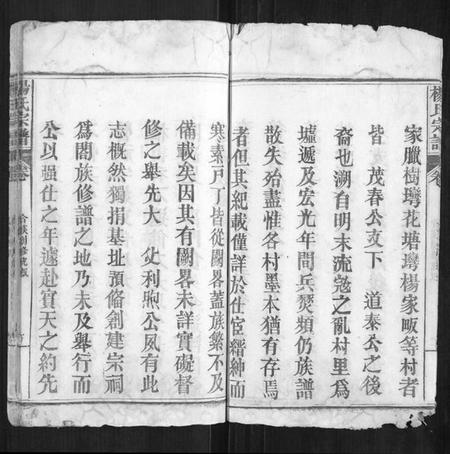 楊氏宗譜
卷
家臘樹塆花塘塆楊家畈等村者
皆 茂春公支下 道泰公之後
裔也溯自明末流寇之亂村里爲
墟遞及宏光年間兵燹頻仍族譜
散失殆盡惟各村墨本猶有存焉
者但其紀載僅詳於仕宦縉紳而
寒素戸丁皆從闊畧蓋族繁不及
備載矣因其有闕畧未詳實礙督
修之舉先大 父利煦公夙有此
志慨然獨捐基址預脩創建宗祠
爲闔族修譜之地乃未及舉行而
公以强仕之年遽赴寳天之約先
楊氏宗譜
卷